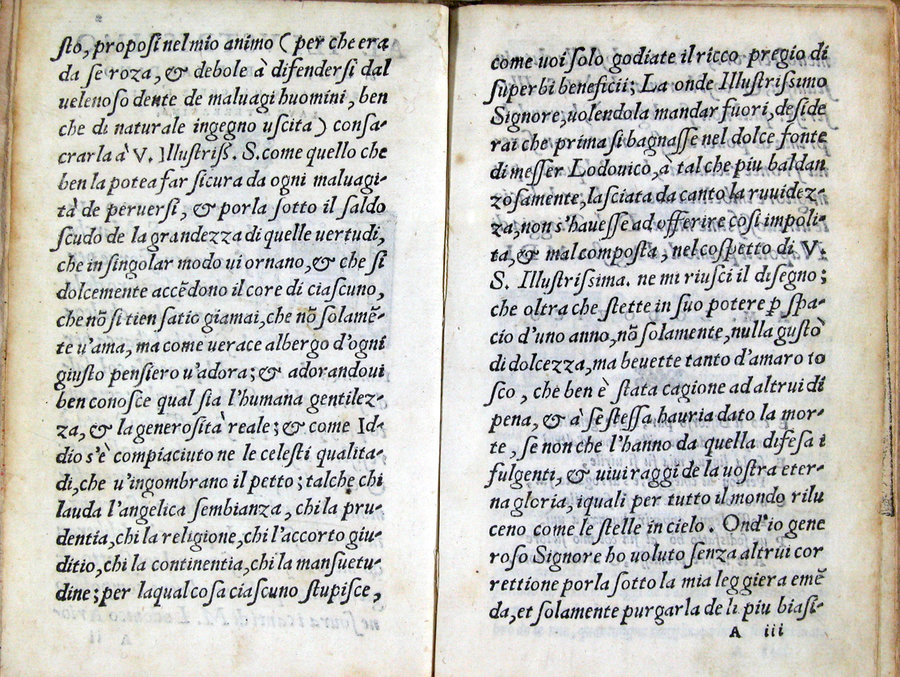 sto, proposi nel mio animo ( per che era
da se roza, & debole à difendersi dal
uelenoso dente de maluagi huomini, ben
che di naturale ingegno uscita ) consa-
crarla à V. Illustriss. S. come quello che
ben la potea far sicura da ogni maluagi-
tà de peruersi, & porla sotto il saldo
scudo de la grandezza di quelle uertudi,
che in singolar modo ui ornano, & che si
dolcemente accēdono il core di ciascuno,
che nõ si tien satio giamai, che nõ solamē-
te u'ama, ma come uerace albergo d'ogni
giusto pensiero u'adora; & adorandoui
ben conosce qual sia l'humana gentilez-
za, & la generosità reale; & come Id-
dio s'è compiaciuto ne le celesti qualita-
di, che u'ingombrano il petto; talche chi
lauda l'angelica sembianza, chi la pru-
dentia, chi la religione, chi l'accorto giu-
ditio, chi la continentia, chi la mansuetu-
dine; per laqual cosa ciascuno stupisce,
A
ii
come uoi solo godiate il ricco pregio di
superbi beneficii; La onde Illustrissimo
Signore, uolendola mandar fuori, deside
rai che prima si bagnasse nel dolce fonte
di messer Lodouico, à tal che piu baldan
zosamente, lasciata da canto la ruuidez-
za, non s'hauesse ad offerire cosi impoli-
ta, & mal composta, nel cospetto di V
S. Illustrissima. ne mi riusci il disegno;
che oltra che stette in suo potere p spa-
cio d'uno anno, nõ solamente, nulla gustò
di dolcezza, ma beuette tanto d'amaro to
sco, che ben è stata cagione ad altrui di
pena, & à se stessa hauria dato la mor-
te, se non che l'hanno da quella difesa i
fulgenti, & uiui raggi de la uostra eter-
na gloria, iquali per tutto il mondo rilu
ceno come le stelle in cielo. Ond'io gene
roso Signore ho uoluto senza altrui cor
rettione porla sotto la mia leggiera emē
da, et solamente purgarla de li piu biasi-
A iii